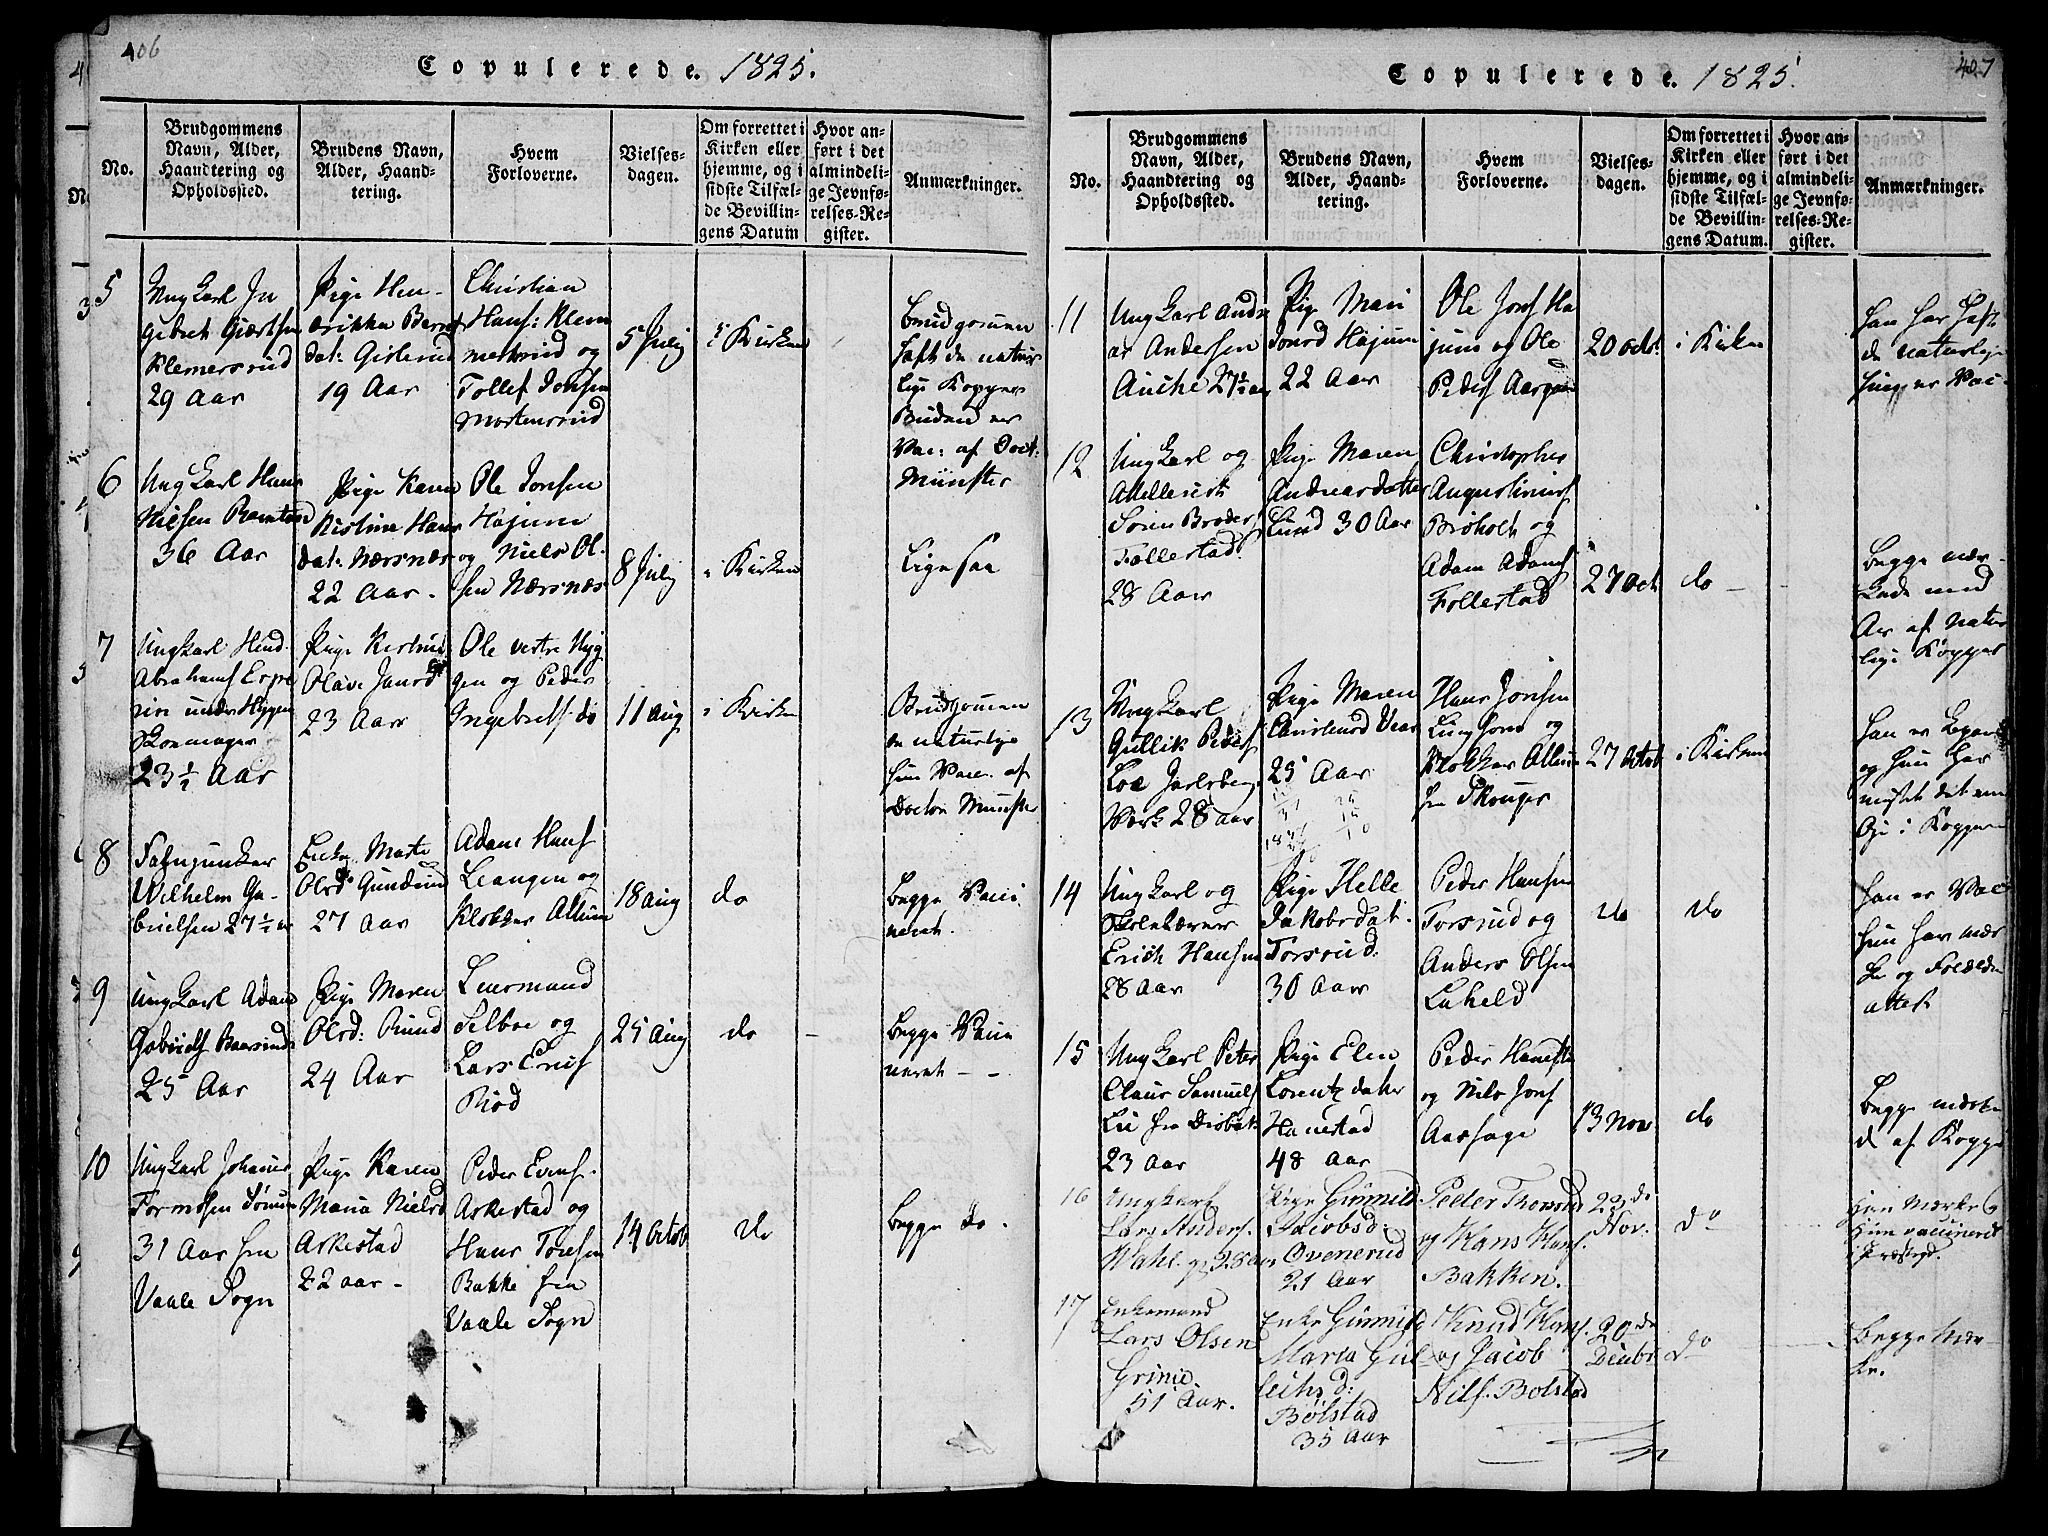 406
Copulerede. 1825.
No.
Brudgommens
Navn, Alder,
Haandtering og
Opholdssted.
Brudens Navn,
Alder, Haand-
tering.
Hvem
Forloverne.
Vielses-
dagen.
Om forrettet i
Kirken eller
hjemme, og i
sidste Tilfæl-
de Bevillin-
gens Datum
Hvor an-
ført i det
almindeli-
ge Jevnfø-
relses-Re-
gister.
Anmærkninger.
5
Ung Karl In
gebret Giærtsen
Klemetsrud
29 Aar
Pige Hen-
drikka Bernt
dat: Gislerud
19 Aar
Christian
Hans: Klem
metsrud og
Tollef Jonsen
Mortensrud
5 July
i Kirken
Brudgomen
haft de natur
lige Kopper
Bruden er
Vac: af Doct:
Münster
6
Ung Karl Hans
Nielsen Ramton
36 Aar
Pige Karen
Kistine Hans
dat: Nærsnæs
22 Aar.
Ole Jonsen
Højum
og Niels Ol-
sen Nærsnæs
8 July
i Kirken
Ligesaa
7
Ungkarl Hend.
Abrahams
under Hyggen
Skomager
23½ Aar
Pige Kistine
Olave Jansd
23 Aar
Ole vestre Hyg
gen og Peder
Ingebrets: do
11 aug
i Kirken
Brudgomen
de naturlige
hun Vacc. af
Doctor Munster
8
Fahnjunker
Wilhelm Ga-
brielsen 27½ aar
Enke Marte
Olsd Gunderud
27 Aar
Adam Hans
Leangen og
Klokker Allum
18 aug
do
Begge Vacci
neret.
9
Ung Karl Adam
Gabriels
25 Aar
Pige Maren
Olsd: Ruud
24 Aar
Lensmand
Selboe og
Lars Erics
Riød
25 Aug
do
Begge Vacci
neret - -
10
Ung Karl Johannes
Tormosen
31 Aar fra
Vaale Sogn
Pige Karen
Maria Nielsd
Arkestad
22 aar -
Peder Evens.
Arkestad og
Hans Toresen
Bakke fra
Vaale Sogn
14 Octob
do
Begge do.
407
Copulerede. 1825.
No.
Brudgommens
Navn, Alder,
Haandtering og
Opholdssted.
Brudens Navn,
Alder, Haand-
tering.
Hvem
Forloverne.
Vielses-
dagen.
Om forrettet i
Kirken eller
hjemme, og i
sidste Tilfæl-
de Bevillin-
gens Datum.
Hvor an-
ført i det
almindeli-
ge Jevnfø-
relses-Re-
gister.
Anmærkninger.
11
Ung Karl Andre
as Andersen
Auche 27½ aar
Pige Mari
Jonsd Højum
22 Aar
Ole Jons Hø
jum og Ole
Peders
20 octr.
i Kirken
han har haft
de naturlige
hun er Vac.
12
Ung Karl og
Søren Broders
Follestad
28 Aar
Pige Maren
Andreasdatter
Lund 30 Aar
Christopher
Augustinus
Brøholt og
Adam Adams
Follestad
27 Oct
do
Begge mær-
kede med
Ar af Natur
lige Kopper
13
Ung Karl
Gullik Peders
Loe Jarlsberg
Værk 28 aar
Pige Maren
25 Aar
Hans Jonsen
og
Klokker Allum
fra Skouger
27 Octob
i Kirken
han er
og hun har
mistet det ene
Øje i Kopperne
14
Ung Karl og
Skolelærer
Erich Hansen
28 Aar
Pige Helle
Jakobsdat.
Torsrud
30 Aar
Peder Hansen
Torsrud og
Anders Olsen
Luheld
do
do
han er Vac
hun har mær
ke og Forældre
attest
15
Ung Karl Peter
Claus Samuels
Lie
23 Aar
Pige Elen
Lorentz datter
Hanestad
48 Aar
Peder Hanesta
og Nils Jons
Aarsage
13 Nov
do
Begge mærke
d af Koppe
16
Ungkarl
Lars Anders.
Wahl. g. 28 aar
Pige Gunnild
Jacobsd:
Ovenerud
21 Aar
Peder Thorsrud
og Hans Hans.
Bakken.
23de
Nov:
do
Han Mærke
Hun vaccineret
17
Enkemand
Lars Olsen
Grinie.
51 Aar.
Enke Gunnild
Maria Gul
leichs d:
Bölstad
35 Aar
Knud Hans.
og Jacob
Nils. Bolstad
20de
Decbr
do
Begge Mær
ke.